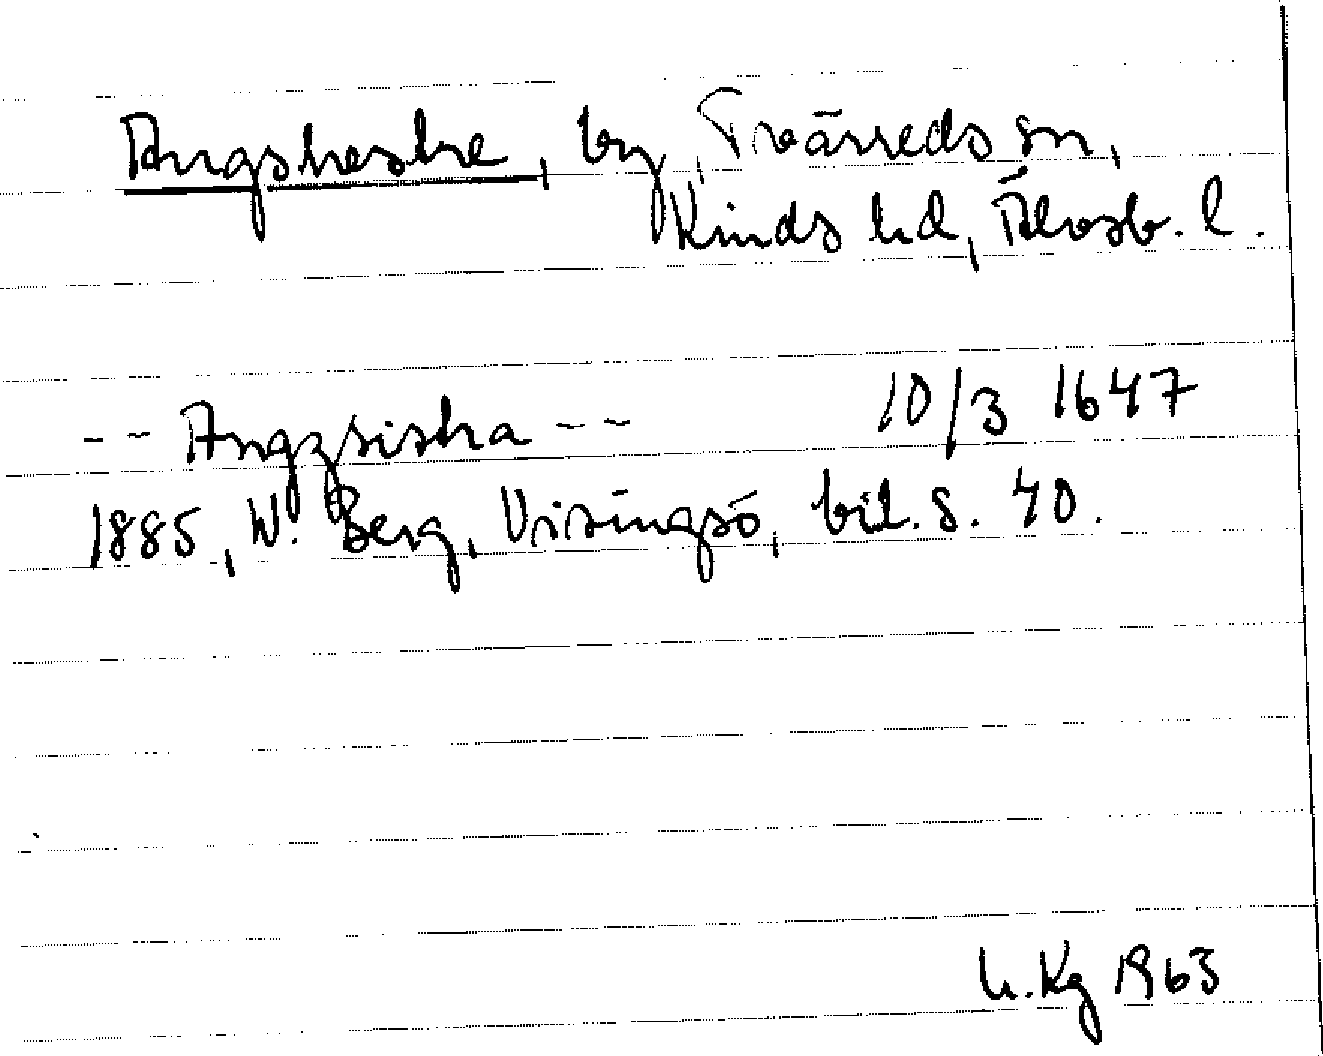 Angsheshe, by, Tvärreds sn,
Kinds hd, Älvsb. l.
-- Angzsiska -- 10/3 1647
1885, W. Berg, Visingsö, bil. s. 40.
h. Kg 1963